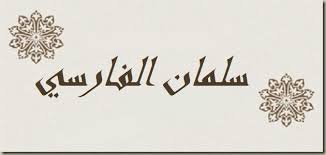 سلمان الفارسي